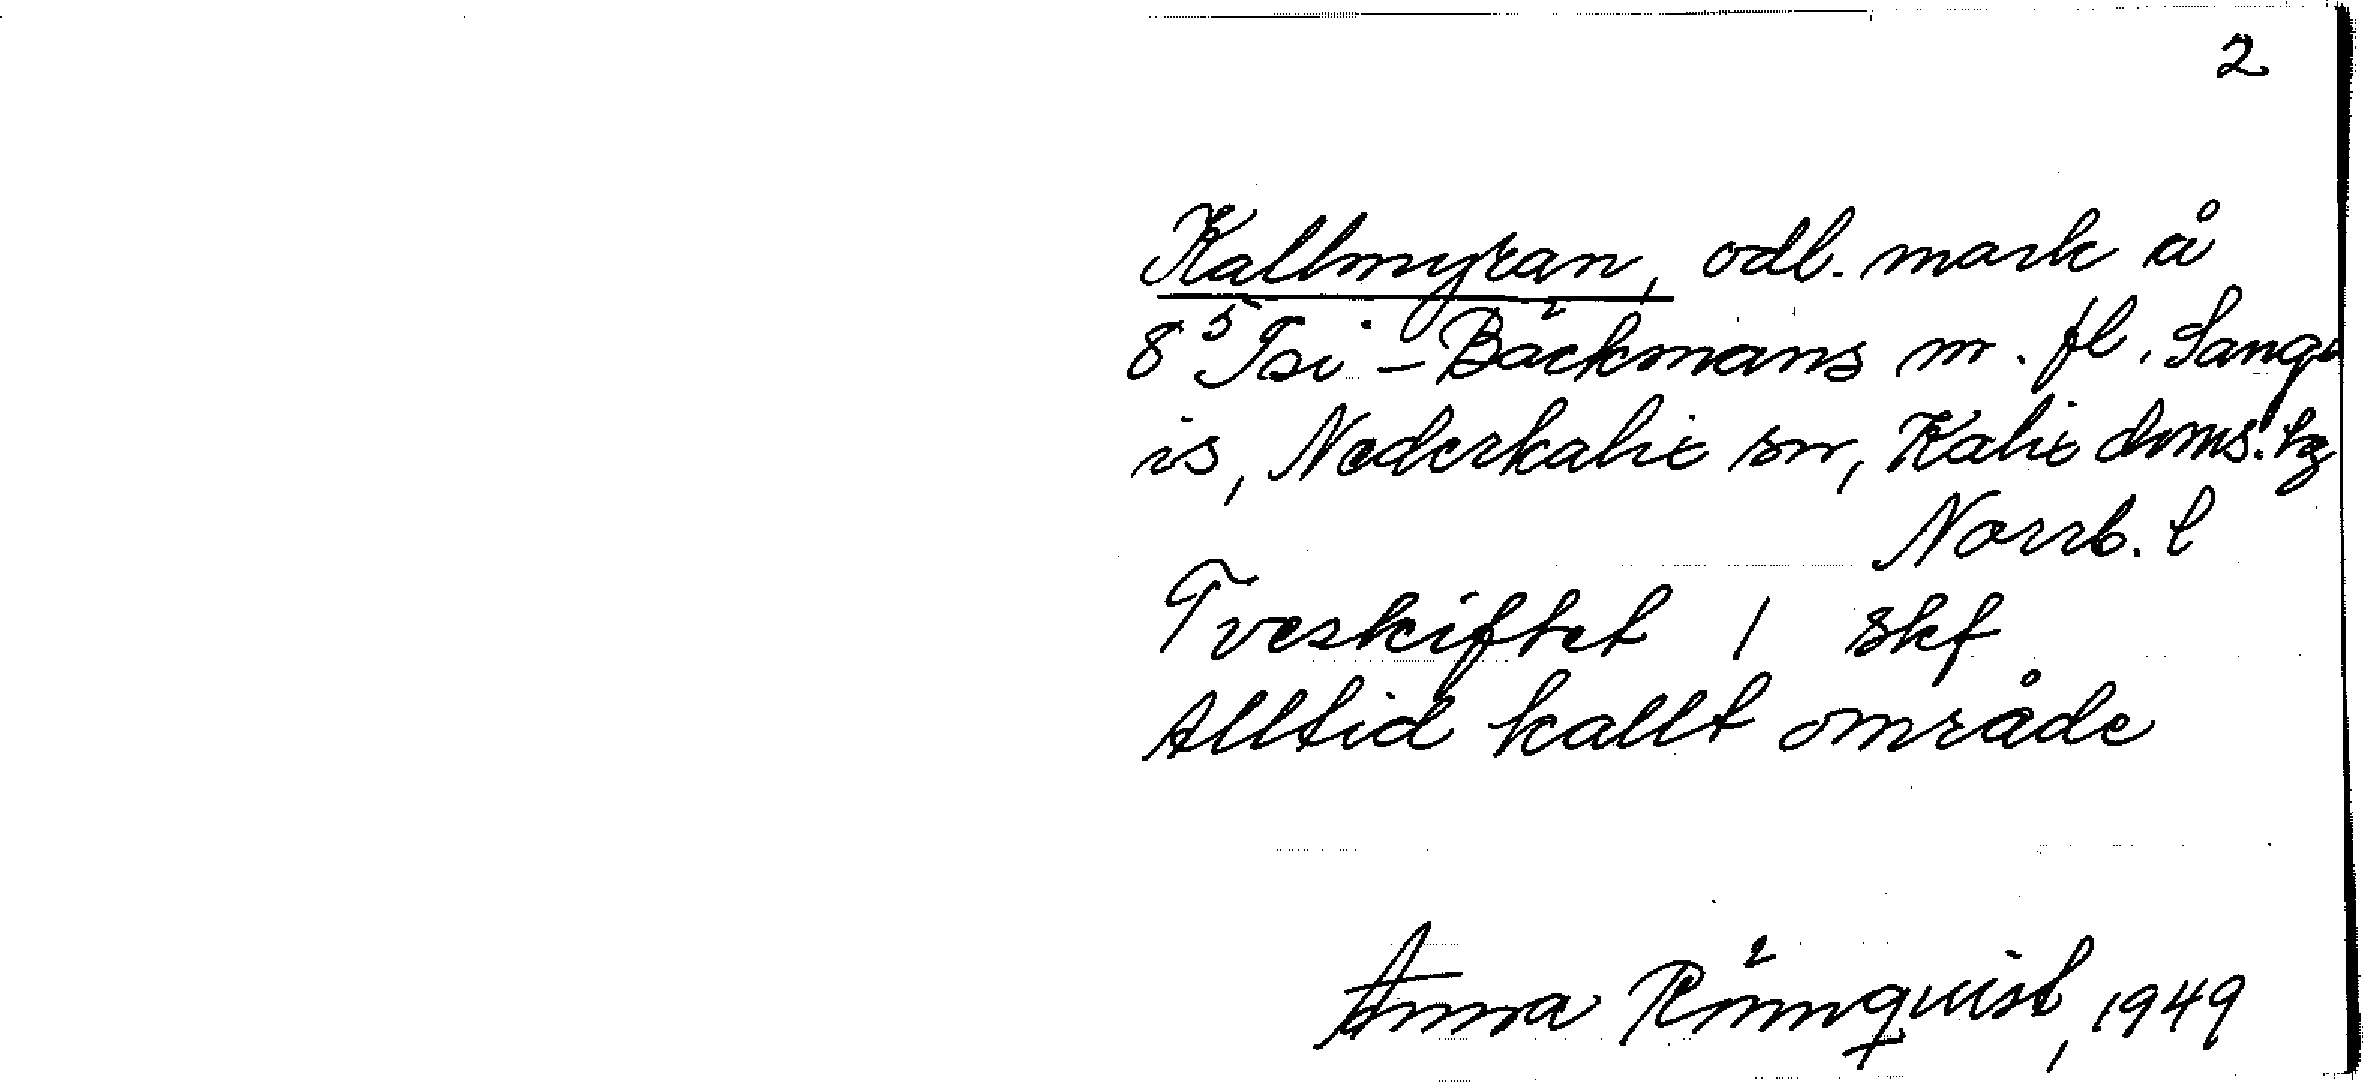 2
Kallmyran, odl. mark å
8⁵ Isi - Bäckmans m. fl. Sang
is, Nederkalix sn, Kalix doms. tg
Norrb. l
Tveskiftet / skf
Alltid kallt område
Anna Rönnquist, 1949